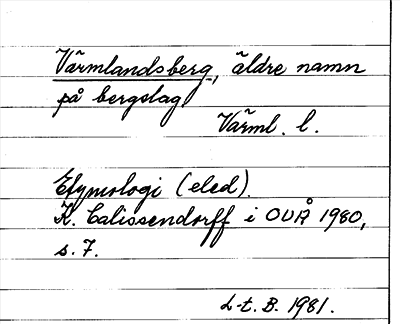 Värmlandsberg, äldre namn
på bergslag
Värml. l.
Etymologi (eled).
K. Calissendorff i OUÅ 1980,
s. 7.
L-t. B. 1981.